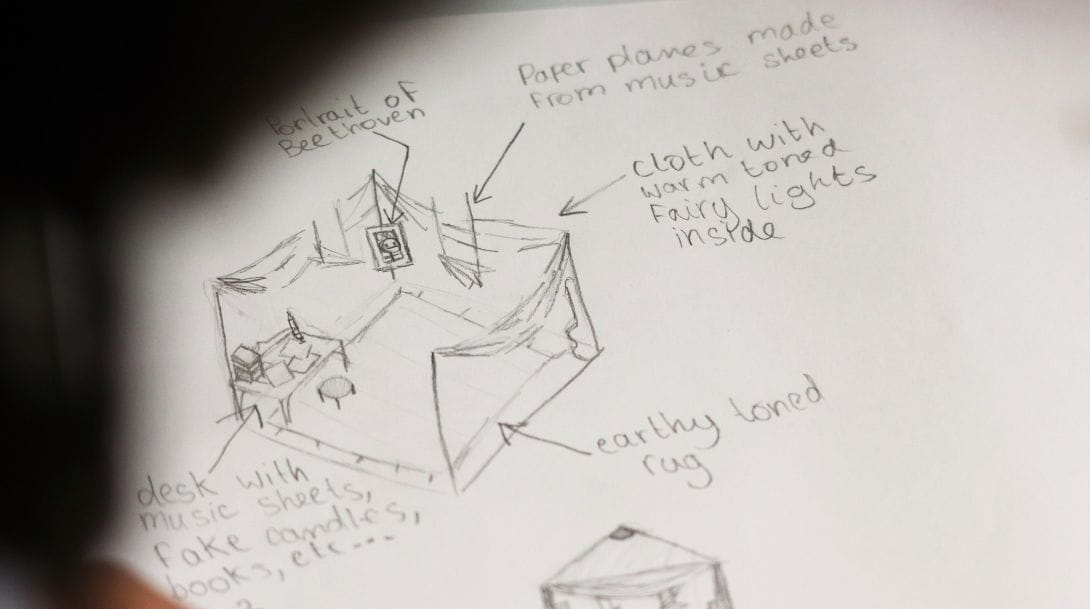 Portrait of
Beethoven
Paper planes made
from music sheets
cloth with
warm toned
Fairy lights
inside
earthy toned
rug
desk with
music sheets,
fake candles,
books, etc...